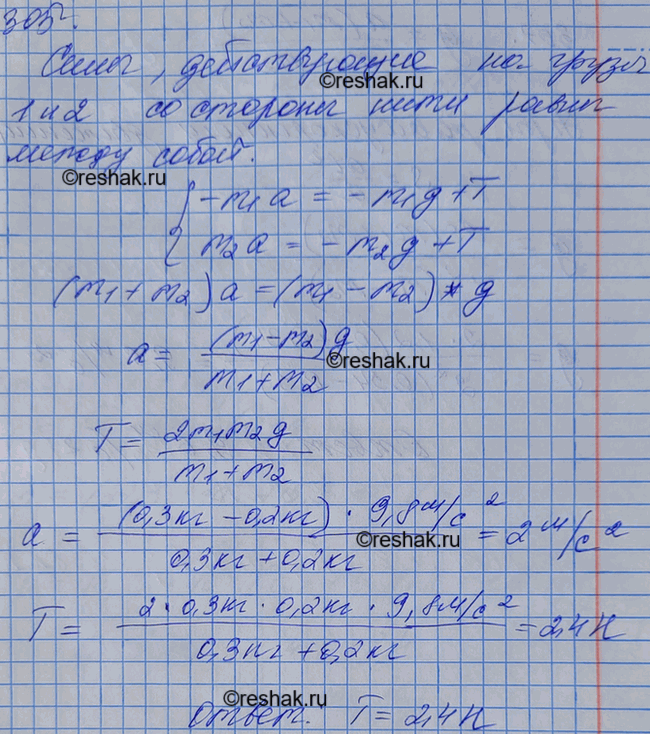 305.
Силы, действующие на грузы
1 и 2 со стороны нити равны
между собой.
©reshak.ru
{ -m₁a = -m₁g + T
m₂a = -m₂g + T
(m₁ + m₂) a = (m₁ - m₂) * g
a = (m₁ - m₂) g / m₁ + m₂
©reshak.ru
T = 2m₁m₂g / m₁ + m₂
a = (0,3кг - 0,2кг) · 9,8м/с² / 0,3кг + 0,2кг = 2 м/с²
©reshak.ru
T = 2 · 0,3кг · 0,2кг · 9,8м/с² / 0,3кг + 0,2кг = 2,4Н
©reshak.ru
Ответ. T = 2,4Н